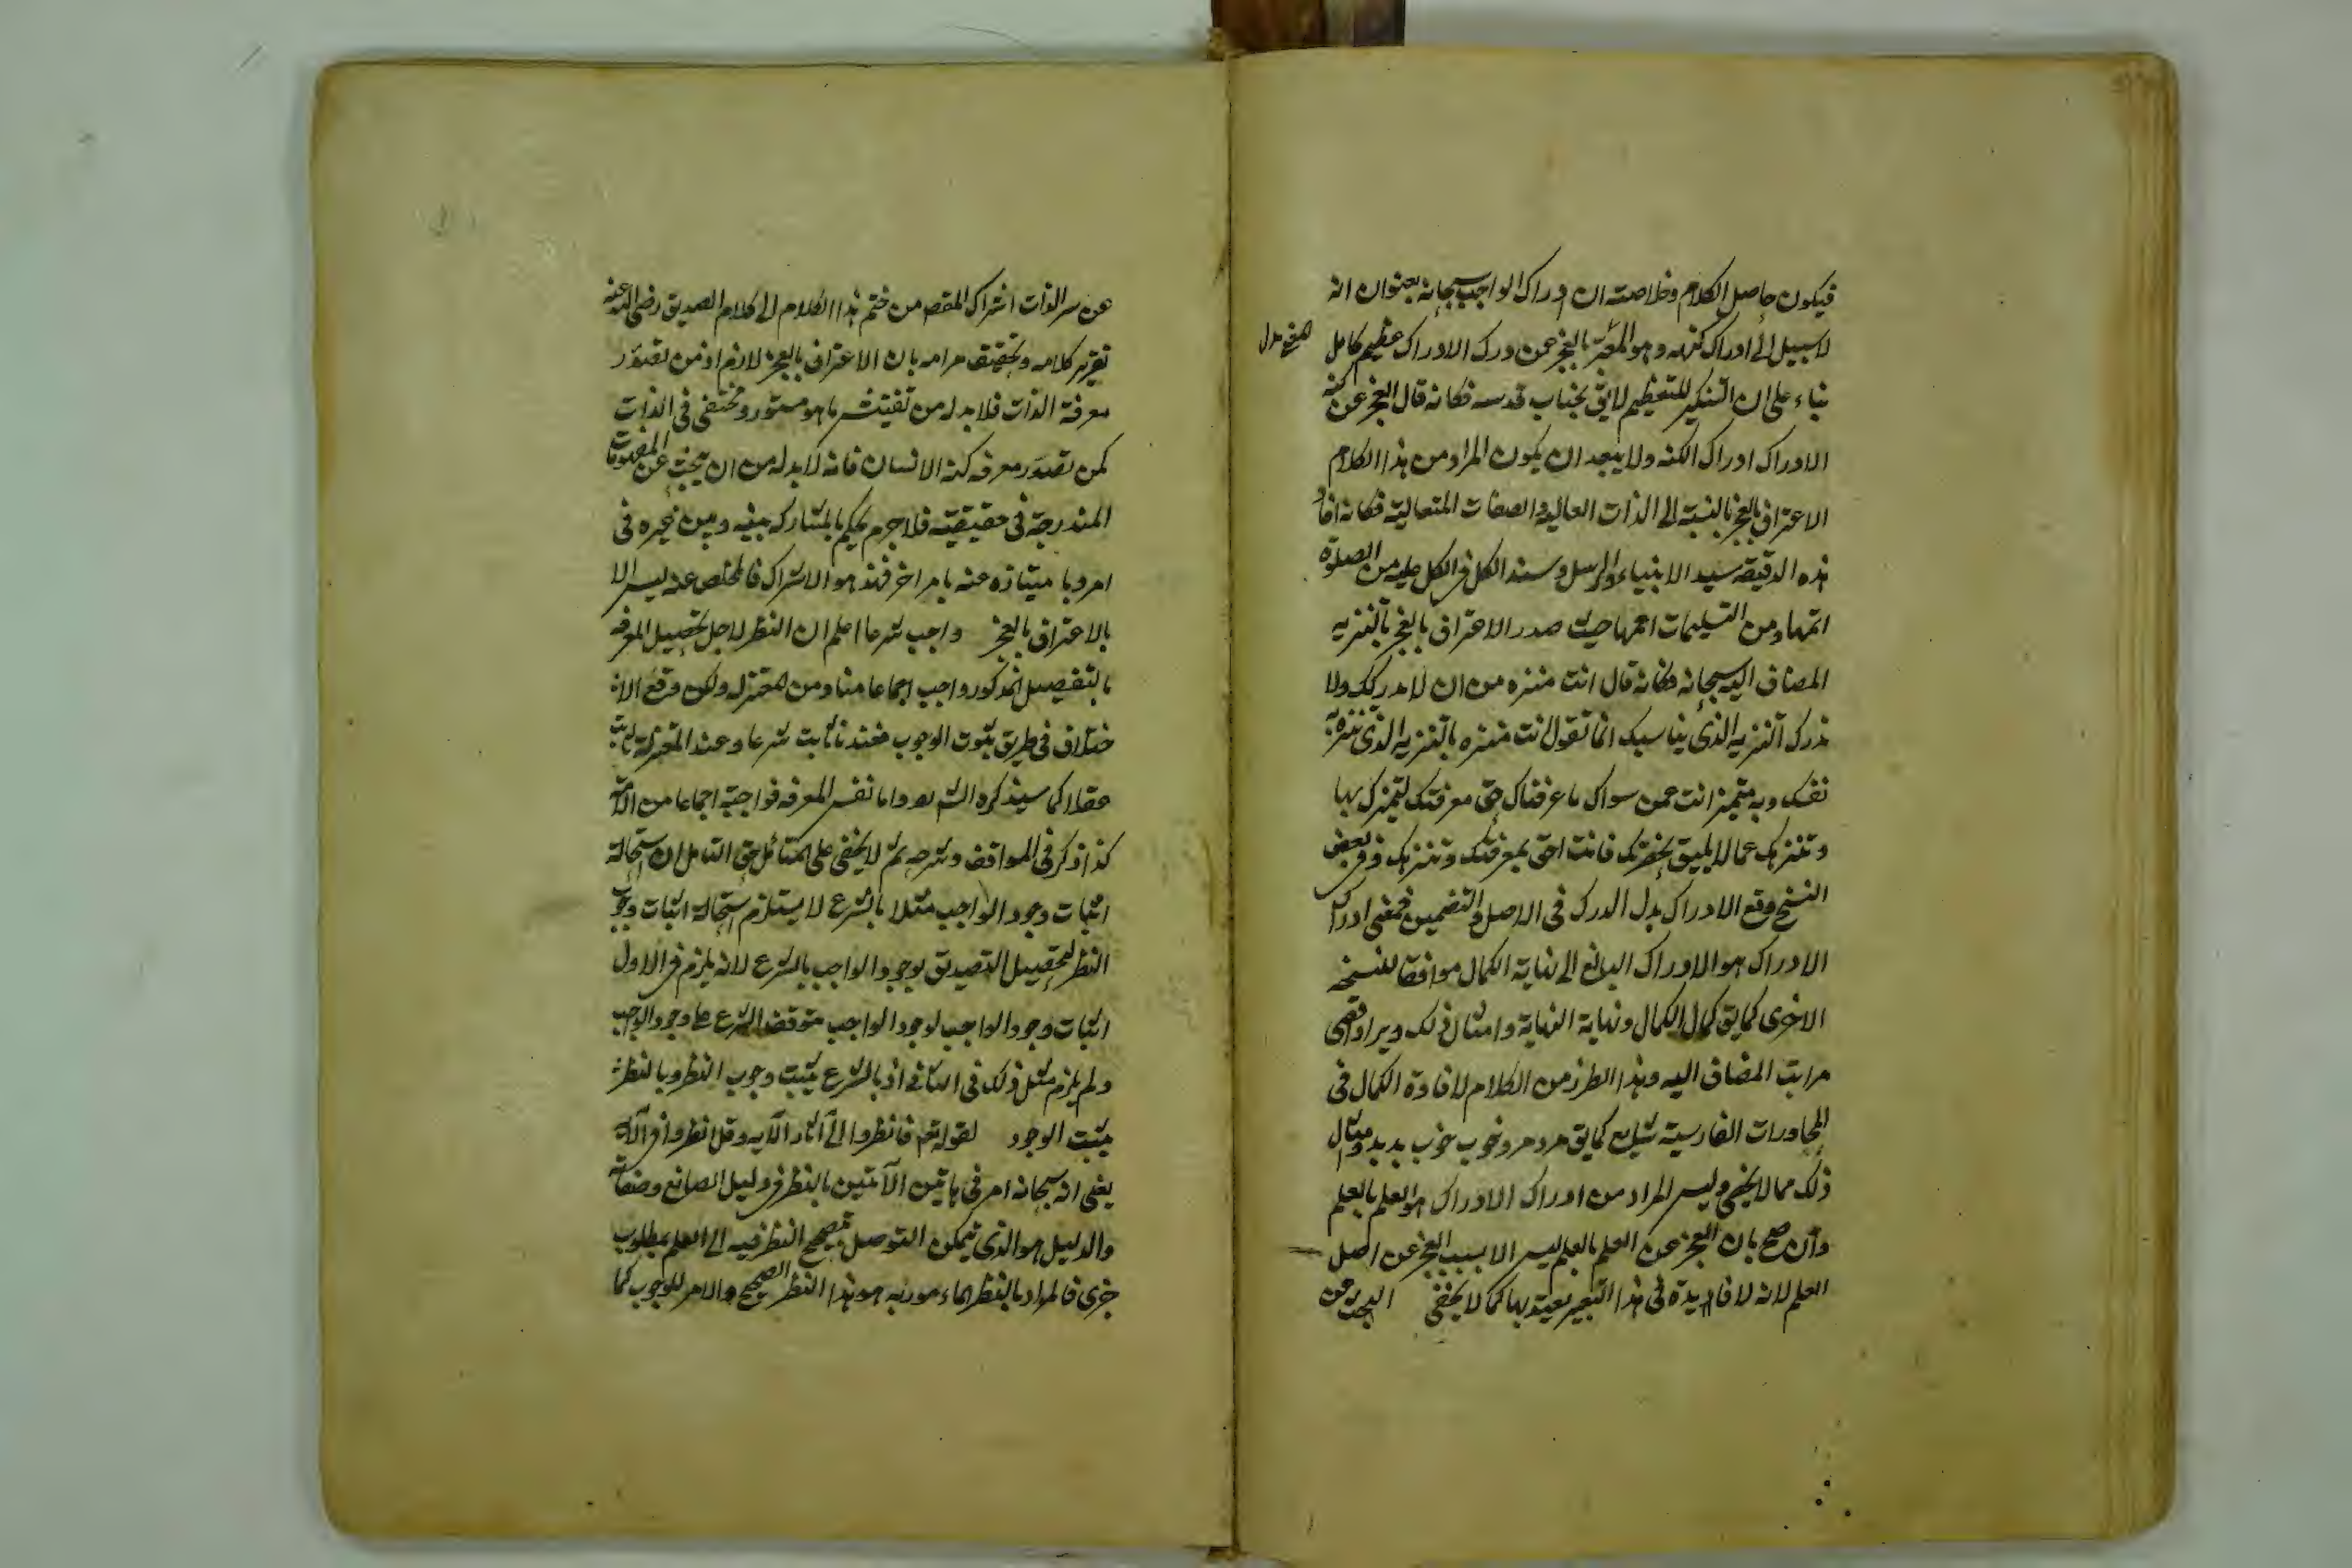 فيكون حاصل الكلام وخلاصته ان ادراك الواجب سبحانه بعنوان انه
لا سبيل الى ادراك كنهه وهو المعبر بالعجز عن درك الادراك عظيم كامل
بناء على ان التنكير للتعظيم لايق بجناب قدسه فكانه قال العجز عن كنه
الادراك ادراك الكنه ولا يبعد ان يكون المراد من هذا الكلام
الاعتراف بالعجز بالنسبة الى الذات العالية والصفات المتعالية فكانه افاد
هذه الدقيقة سيد الانبياء والرسل وسند الكل في الكل عليه من الصلوة
اتمها ومن التسليمات اعمها حيث صدر الاعتراف بالعجز بالتنزيه
المضاف اليه سبحانه فكانه قال انت منزه من ان لا ندركك ولا
ندرك التنزيه الذي يناسبك انما نقول انت منزه بالتنزيه الذي تنزه به
نفسك وبه متميز انت عمن سواك ما عرفناك حق معرفتك لتميزك بها
وتنزهك عما لا يليق بحضرتك فانت احق بمعرفتك وتنزهك وفي بعض
النسخ وقع الادراك بدل الدرك في الاصل والتضمين فمعنى ادراك
الادراك هو الادراك البالغ الى نهاية الكمال موافقا للنسخه
الاخرى كما يق كمال الكمال ونهاية النهاية وامثال ذلك ويراد اقصى
مراتب المضاف اليه وهذا الطرز من الكلام لافادة الكمال في
المحاورات الفارسية شايع كما يق مرد مرد وخوب خوب بد بد وامثال
ذلك مما لا يخفى وليس المراد من ادراك الادراك هو العلم بالعلم
وان صح بان العجز عن العلم بالعلم ليس الا بسبب العجز عن اصل
العلم لانه لا فائدة في هذا التعبير يعتد بها كما لا يخفى البحث عن
عن سر الذات اشراك المقصد من ختم هذا الكلام الى كلام الصديق رضى الله عنه
تقرير كلامه وتحقيق مرامه بان الاعتراف بالعجز لازم اذ من تصور
معرفة الذات فلا بد له من تفتيش ما هو مستور ومختفى في الذات
كمن تصور معرفة كنه الانسان فانه لا بد له من ان يبحث عن المفهومات
المندرجة في حقيقته فلا جرم يحكم بالمشاركة بينه وبين غيره في
امر وبامتيازه عنه بامر اخر فهذا هو الاشراك فالمخلص عنه ليس الا
بالاعتراف بالعجز واجب شرعا اعلم ان النظر لاجل تحصيل المعرفه
بالتفصيل المذكور واجب اجماعا منا ومن المعتزله ولكن وقع الا
ختلاف في طريق ثبوت الوجوب فعندنا ثابت شرعا وعند المعتزلة ثابت
عقلا كما سيذكره الش بعد واما نفس المعرفه فواجبة اجماعا من الامة
كذا ذكر في المواقف وشرحه ثم لا يخفى على المتأمل حق التامل ان استحالة
اثبات وجود الواجب مثلا بالشرع لا يستلزم استحالة اثبات وجوب
النظر لتحصيل التصديق بوجود الواجب بالشرع لانه يلزم في الاول
اثبات وجود الواجب لوجود الواجب متوقف الشرع على وجود الواجب
ولم يلزم مثل ذلك في الثاني اذ بالشرع يثبت وجوب النظر وبالنظر
يثبت الوجود لقوله تعه فانظروا الى آثار الآيه وقل انظروا في الآيه
يعنى انه سبحانه امر في هاتين الآيتين بالنظر في دليل الصانع وصفاته
والدليل هو الذي يمكن التوصل بصحيح النظر فيه الى العلم بمطلوب
خبرى فالمراد بالنظر الماء مور به هو هذا النظر الصحيح والامر للوجوب كما